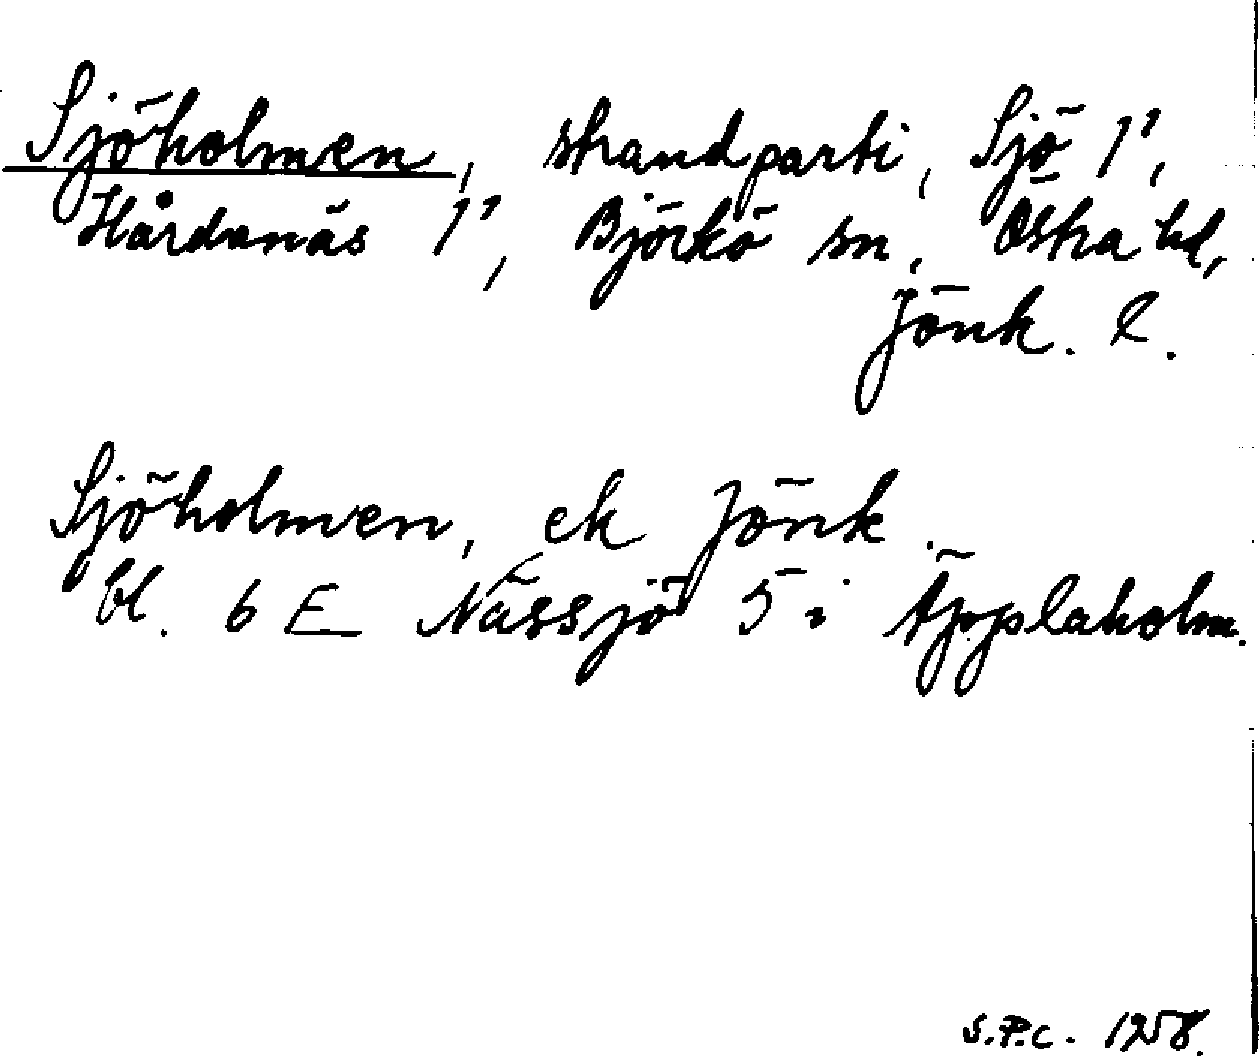 Sjöholmen, strandparti, Sjö 1¹,
Hårdanäs 1¹, Björkö sn, Östra hd,
Jönk. l.
Sjöholmen, ek Jönk.
bl. 6 E Nässjö 5 i Äpplaholm.
S.P.C. 1958.